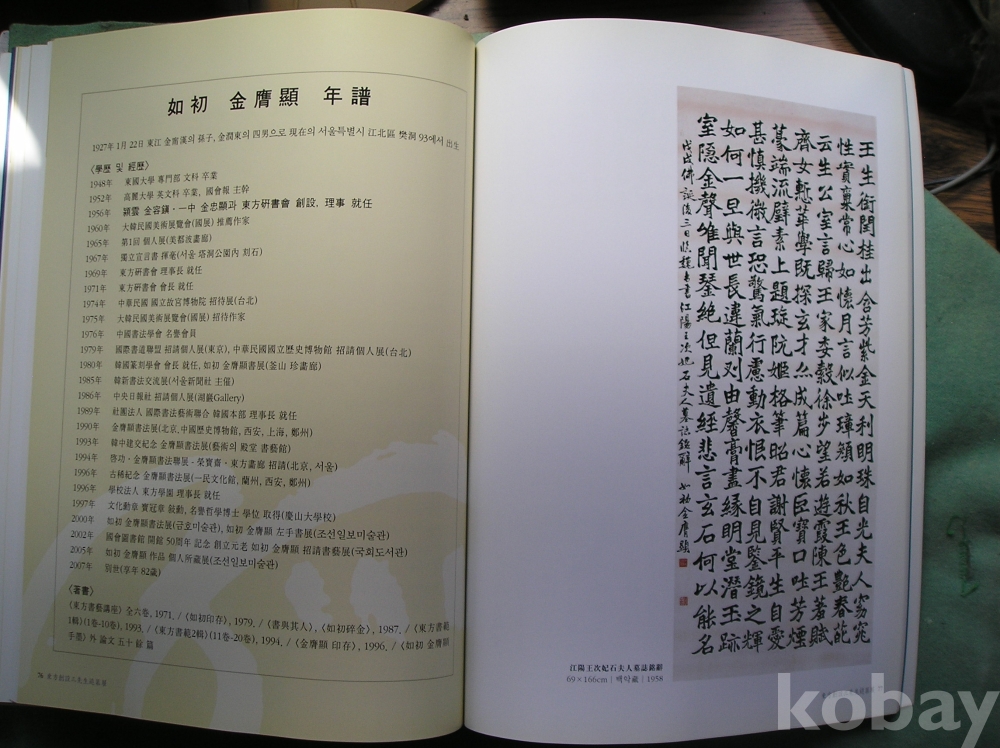 如初 金膺顯 年譜
1927年 1月 22日 東江 金甯漢의 孫子, 金潤東의 四男으로 現在의 서울특별시 江北區 樊洞 93에서 出生
〈學歷 및 經歷〉
1948年 東國大學 專門部 文科 卒業
1952年 高麗大學 英文科 卒業, 國會報 主幹
1956年 穎雲 金容鎭·一中 金忠顯과 東方硏書會 創設, 理事 就任
1960年 大韓民國美術展覽會(國展) 推薦作家
1965年 第1回 個人展(美都波畫廊)
1967年 獨立宣言書 揮毫(서울 塔洞公園內 刻石)
1969年 東方硏書會 理事長 就任
1971年 東方硏書會 會長 就任
1974年 中華民國 國立故宮博物院 招待展(台北)
1975年 大韓民國美術展覽會(國展) 招待作家
1976年 中國書法學會 名譽會員
1979年 國際書道聯盟 招請個人展(東京), 中華民國國立歷史博物館 招請個人展(台北)
1980年 韓國篆刻學會 會長 就任, 如初 金膺顯書展(釜山 珍畵廊)
1985年 韓新書法交流展(서울新聞社 主催)
1986年 中央日報社 招請個人展(湖巖Gallery)
1989年 社團法人 國際書法藝術聯合 韓國本部 理事長 就任
1990年 金膺顯書法展(北京,中國歷史博物館, 西安, 上海, 鄭州)
1993年 韓中建交紀念 金膺顯書法展(藝術의 殿堂 書藝館)
1994年 啓功·金膺顯書法聯展 - 榮寶齋·東方畵廊 招請(北京, 서울)
1996年 古稀紀念 金膺顯書法展(一民文化館, 蘭州, 西安, 鄭州)
1996年 學校法人 東方學園 理事長 就任
1997年 文化勳章 寶冠章 敘勳, 名譽哲學博士 學位 取得(慶山大學校)
2000年 如初 金膺顯書法展(금호미술관), 如初 金膺顯 左手書展(조선일보미술관)
2002年 國會圖書館 開館 50周年 記念 創立元老 如初 金膺顯 招請書藝展(국회도서관)
2005年 如初 金膺顯 作品 個人所藏展(조선일보미술관)
2007年 別世(享年 82歲)
〈著書〉
〈東方書藝講座〉 全六卷, 1971. / 〈如初印存〉, 1979. / 〈書與其人〉, 〈如初碎金〉, 1987. / 〈東方書範
1輯〉(1卷-10卷), 1993. / 〈東方書範2輯〉(11卷-20卷), 1994. / 〈金膺顯 印存〉, 1996. / 〈如初 金膺顯
手墨〉 外 論文 五十 餘 篇
76
王生銜閏桂出含芳紫金天利明珠自光夫人窈窕
性實稟常心如懷月言似吐璋頰如秋玉色艷春葩
云生公室言歸王家委縠徐步望若遊霞陳王著賦
齊女慙華學旣探玄才亦成篇心懷巨寶口吐芳煙
毫端流璧素上題琁阮姬格筆昭君謝賢平生自愛
甚愼機微言恐驚氣行慮動衣恨不自見鑒鏡之輝
如何一旦與世長違蘭刈由馨膏盡緣明堂潛玉跡
室隱金聲唯聞琴絶但見遺經悲言玄石何以能名
江陽王次妃石夫人墓誌銘辭
69×166cm | 백악藏 | 1958
kobay